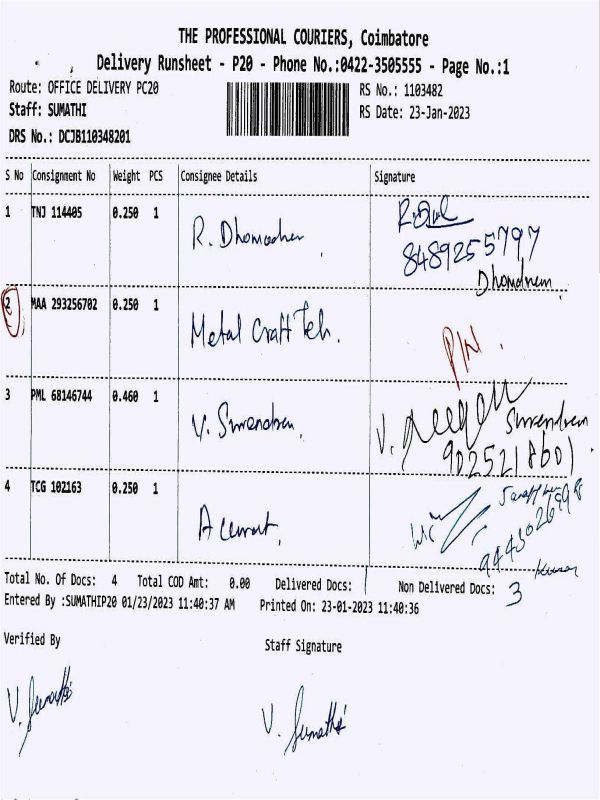 THE PROFESSIONAL COURIERS, Coimbatore
Delivery Runsheet - P20 - Phone No.:0422-3505555 - Page No.:1
Route: OFFICE DELIVERY PC20
RS No.: 1103482
Staff: SUMATHI
RS Date: 23-Jan-2023
DRS No.: DCJB110348201
S No Consignment No Weight PCS Consignee Details Signature
1 TNJ 114405 0.250 1
R.
8489255797
2 MAA 293256702 0.250 1
Metal Craft Teh.
P/N.
3 PML 68146744 0.460 1
V. Surendren.
V.
Surendren
9025218601
4 TCG 102163 0.250 1
A
Kumar
Total No. Of Docs: 4 Total COD Amt: 0.00 Delivered Docs: 1 Non Delivered Docs: 3
Entered By :SUMATHIP20 01/23/2023 11:40:37 AM Printed On: 23-01-2023 11:40:36
Verified By
Staff Signature
V. Sumathi
V. Sumathi